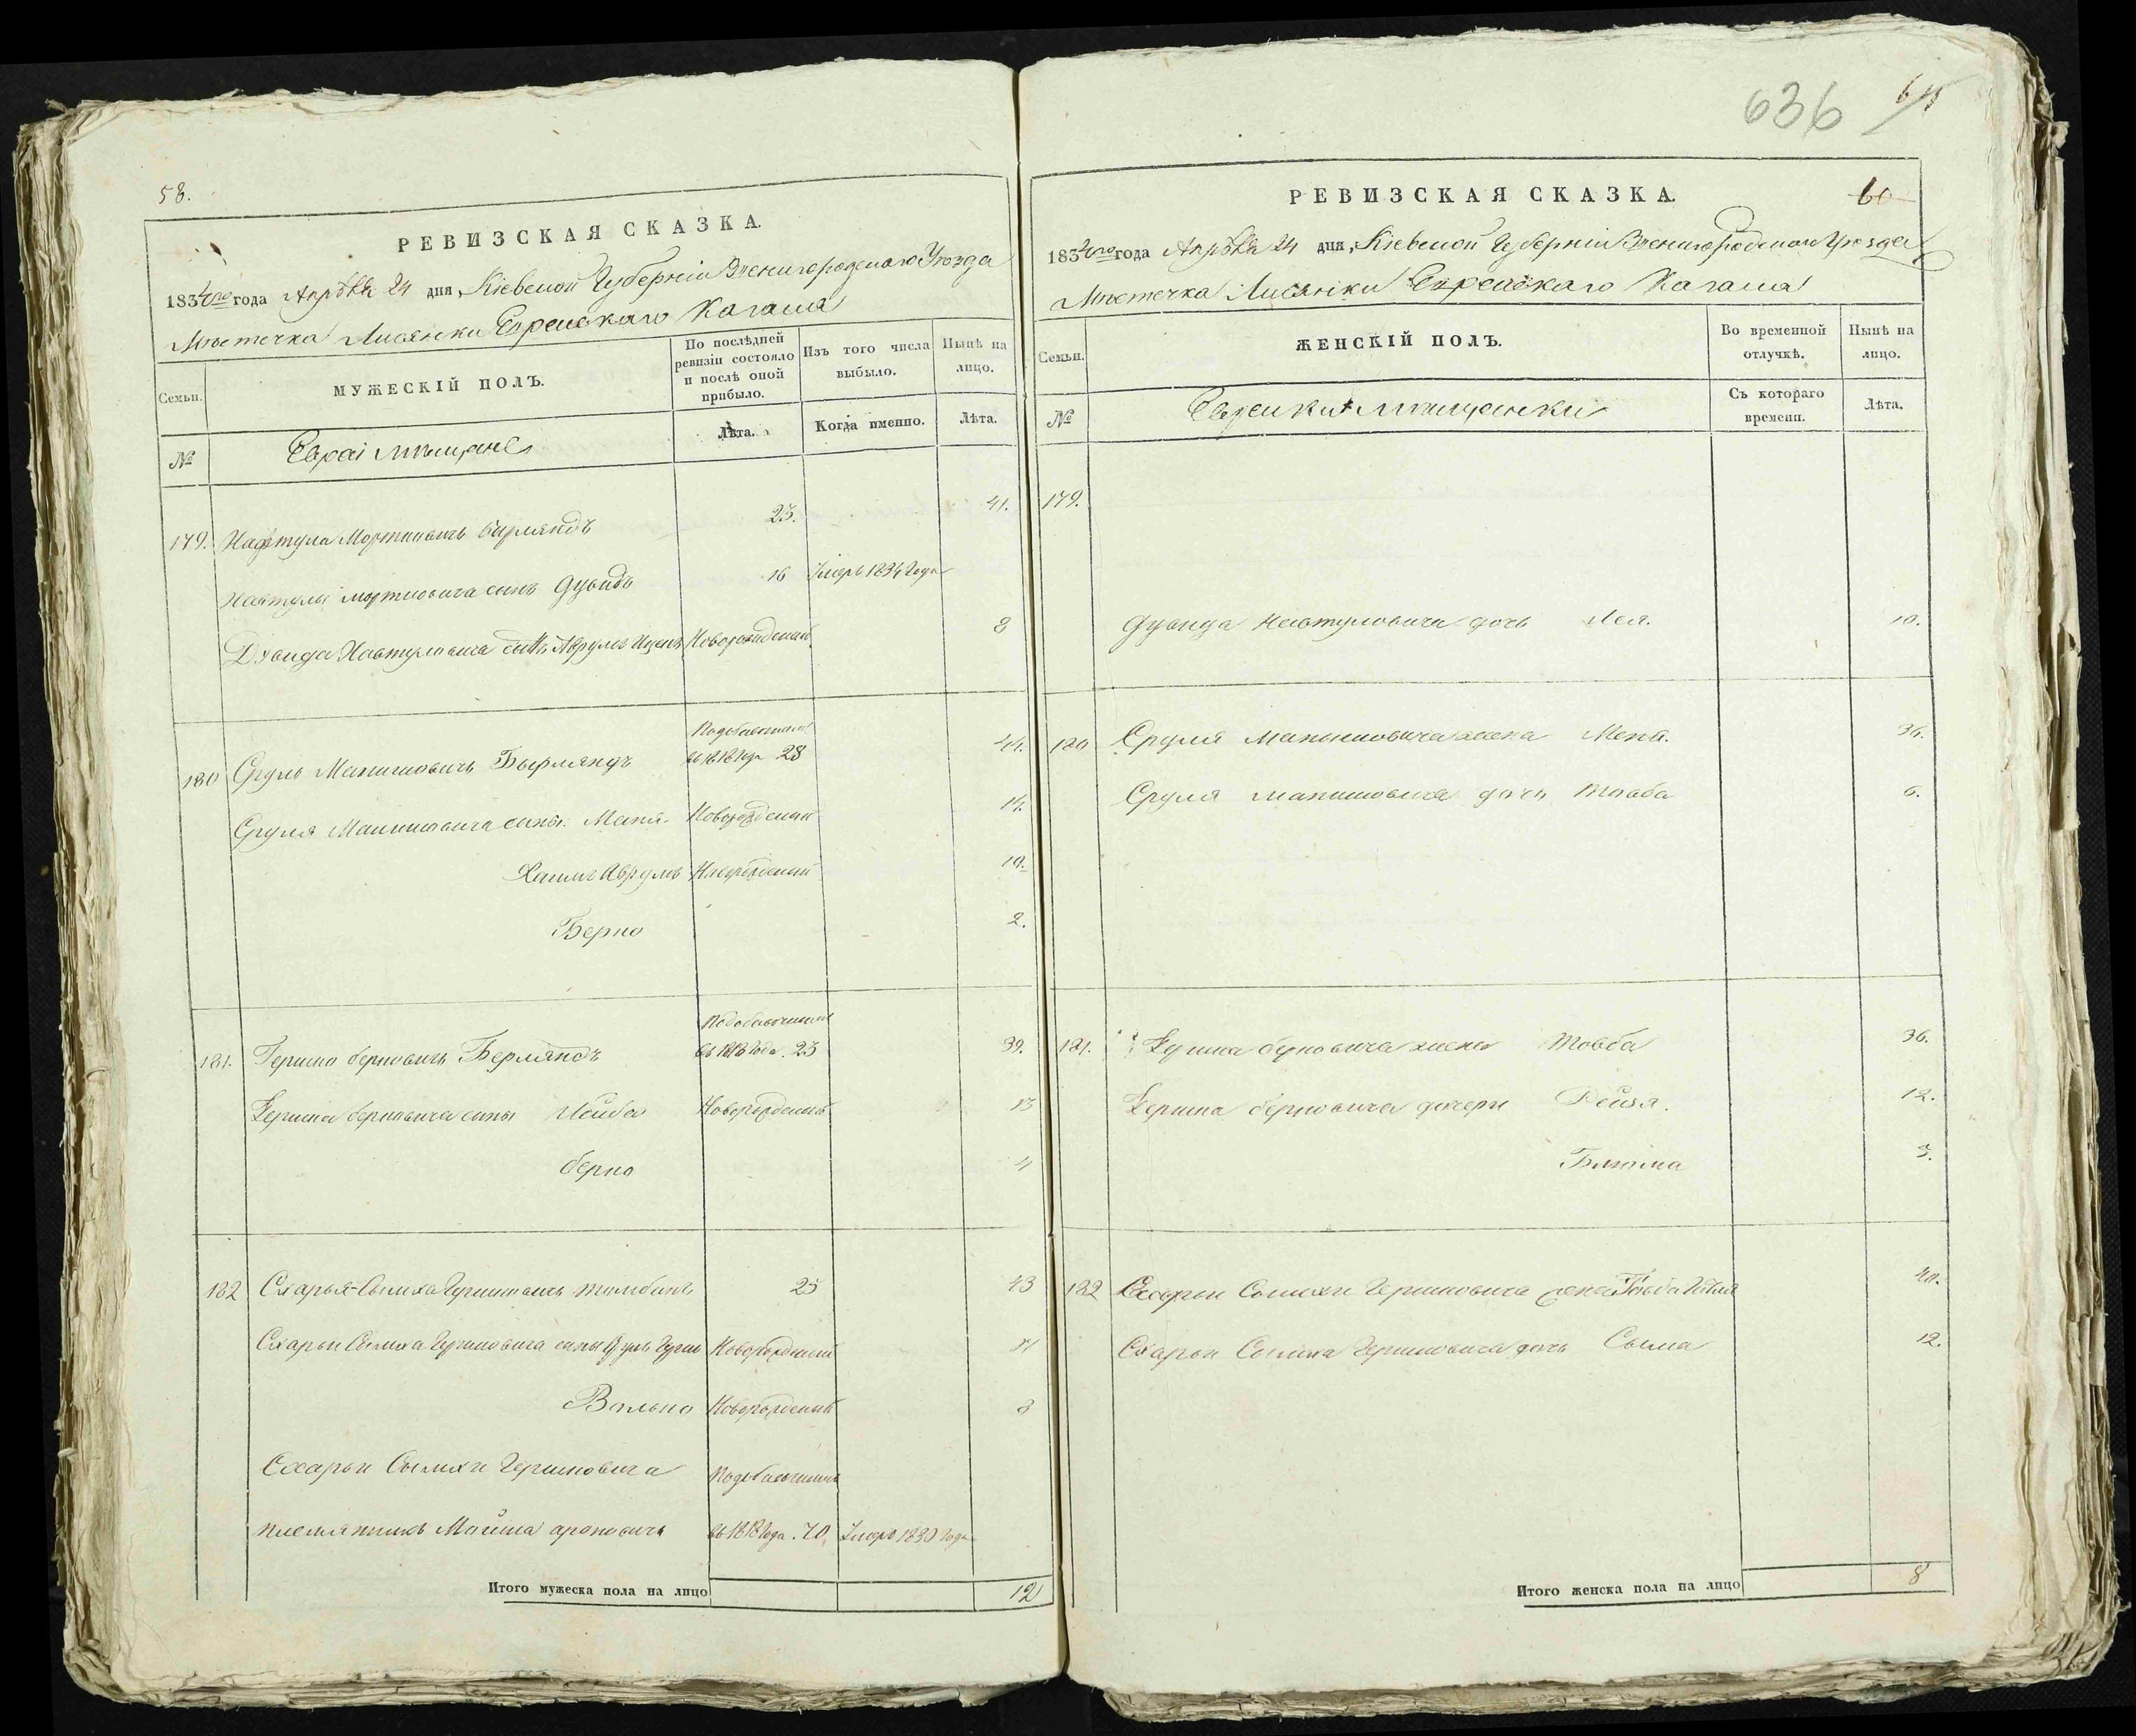 58.
РЕВИЗСКАЯ СКАЗКА.
1834го года Апрѣля 24 дня, Кіевской Губерніи Звенигородскаго Уезда
Мѣстечка Лисянки Еврейскаго Кагала
Семьи.
МУЖЕСКІЙ ПОЛЪ.
По послѣдней ревизіи состояло и послѣ оной прибыло.
Изъ того числа выбыло.
Нынѣ на лицо.
№
Евреи мѣщане
Лѣта.
Когда именно.
Лѣта.
179. Нафтула Мортковичъ Бырляндъ 23. 41.
Нафтулы Мортковича сынъ Дувидъ 16 Умеръ 1834 Года
Дувида Нафтуловича сынъ Аврумъ Ицекъ Новорожденый 8
180 Сруль Маниовичъ Бырляндъ 28 44.
Сруля сыны. Маня. Новорожденый 14.
Хаимъ Аврумъ Новорожденый 10.
Берко 2.
181. Гершко Берковичъ Берляндъ въ 1818 Года. 23 39.
Гершка Берковича сыны Лейба Новорожденый 13
Берко 4
182 Схарья-Сымха Гершковичъ 25 43
Схарьи Сымха Гершковича сыны Сруль Новорожденый
Волько Новорожденый 8
Схарьи Сымхи Гершковича
племянникъ Мойша Ароновичъ въ 1818 Года. 70 Умеръ 1830 Года
Итого мужеска пола на лицо 12
636
60
РЕВИЗСКАЯ СКАЗКА.
1834го года Апрѣля 24 дня, Кіевской Губерніи Звенигородскаго Уезда
Мѣстечка Лисянки Еврейскаго Кагала
Семьи.
ЖЕНСКІЙ ПОЛЪ.
Во временной отлучкѣ.
Нынѣ на лицо.
№
Еврейки мѣщанки
Съ котораго времени.
Лѣта.
179.
Дувида Нафтуловича дочь Лея. 10.
180 Сруля жена 36.
Сруля дочь Товба 6.
181. Гершка Берковича жена Товба 36.
Гершка Берковича дочери Рейзя. 12.
Блюма 3.
182 Схарьи Сымхи Гершковича жена 40.
Схарьи Сымха Гершковича дочь Сыма 12.
Итого женска пола на лицо 8